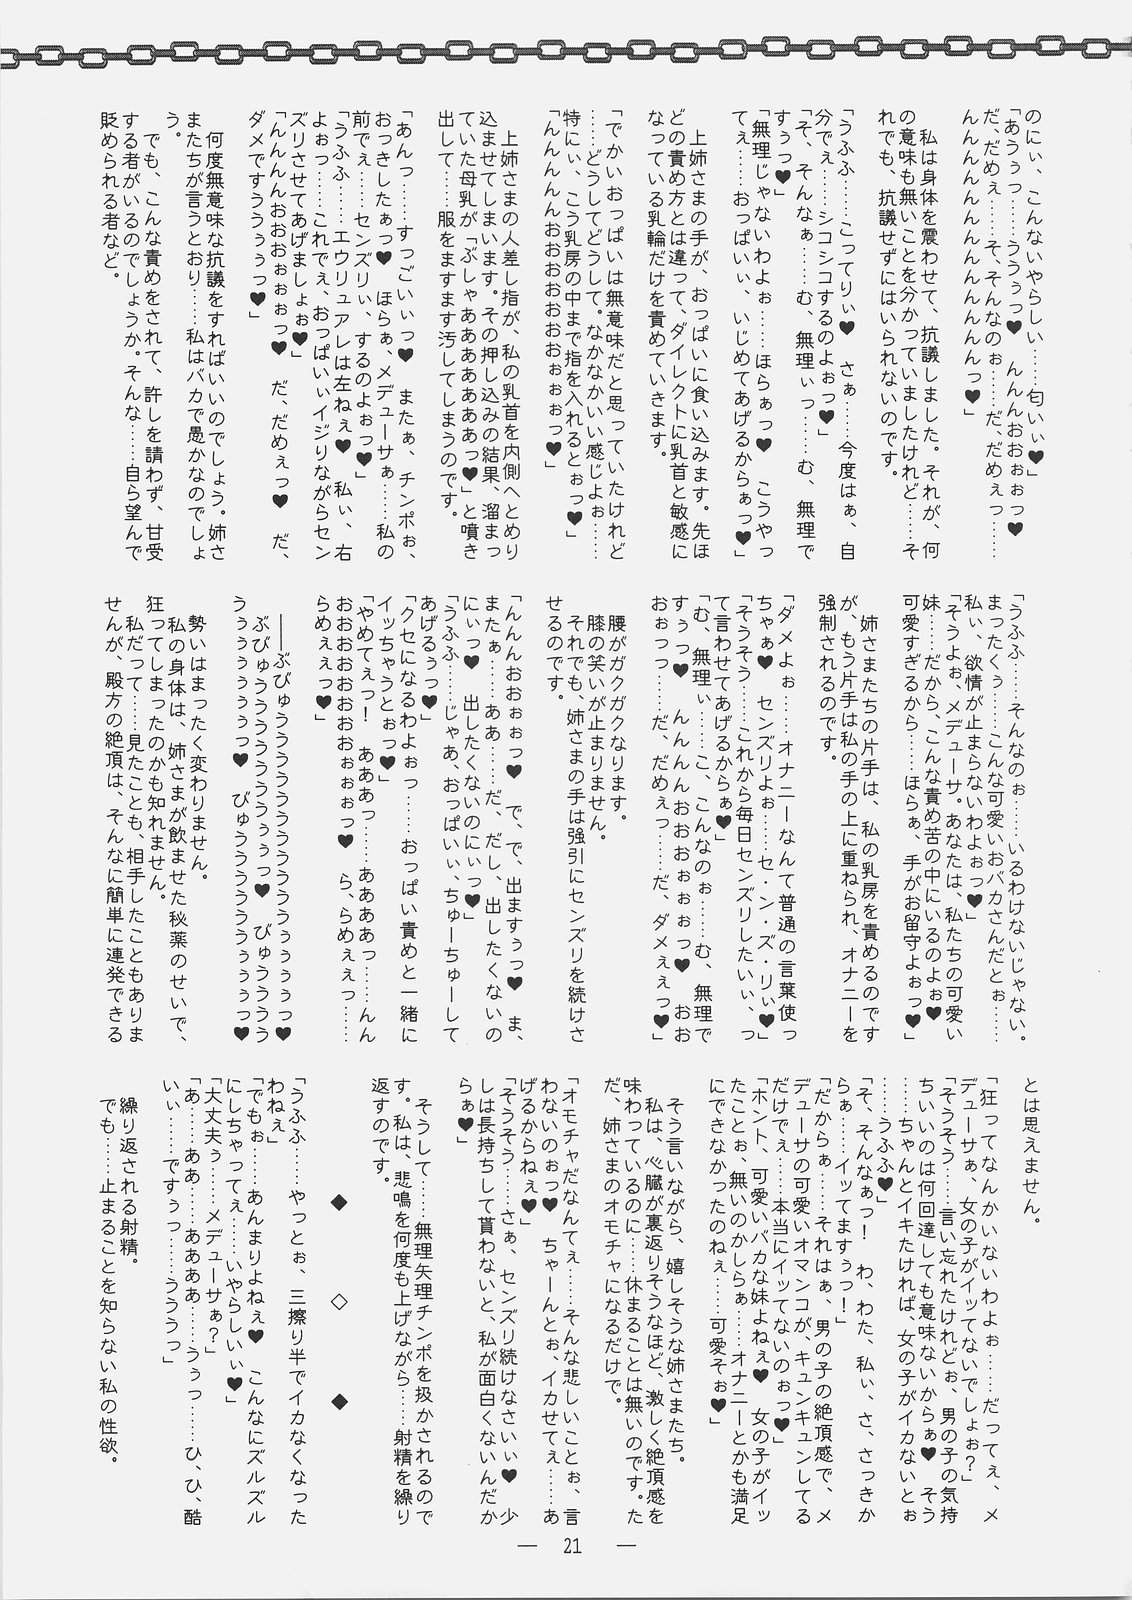 のにぃ、こんないやらしい……匂いぃ♥」
「あうぅっ……ううぅっ♥　んんんおおぉぉっ♥
だ、だめぇ……そ、そんなのぉ……だ、だめぇっ……
んんんんんんんんんんんんんっ♥」
　私は身体を震わせて、抗議しました。それが、何
の意味も無いことを分かっていましたけれど……そ
れでも、抗議せずにはいられないのです。
「うふふ……こってりぃ♥　さぁ……今度はぁ、自
分でぇ……シコシコするのよぉっ♥」
「そ、そんなぁ……む、無理ぃっ……む、無理で
すぅっ♥」
「無理じゃないわよぉ……ほらぁっ♥　こうやっ
てぇ……おっぱいぃ、いじめてあげるからぁっ♥」
　上姉さまの手が、おっぱいに食い込みます。先ほ
どの責め方とは違って、ダイレクトに乳首と敏感に
なっている乳輪だけを責めていきます。
「でかいおっぱいは無意味だと思っていたけれど
……どうしてどうして。なかなかいい感じよぉ……
特にぃ、こう乳房の中まで指を入れるとぉっ♥」
「んんんんんおおおおおおおぉぉぉっ♥」
　上姉さまの人差し指が、私の乳首を内側へとめり
込ませてしまいます。その押し込みの結果、溜まっ
ていた母乳が「ぶしゃああああああぁっ♥」と噴き
出して……服をますます汚してしまうのです。
「あんっ……すっごいぃっ♥　またぁ、チンポぉ、
おっきしたぁっ♥　ほらぁ、メデューサぁ……私の
前でぇ……センズリぃ、するのよぉっ♥」
「うふふ……エウリュアレは左ねぇ♥　私ぃ、右
よぉっ……これでぇ、おっぱいぃイジりながらセン
ズリさせてあげましょぉ♥」
「んんんんおおおぉぉぉっ♥　だ、だめぇっ♥　だ、
ダメですううぅぅっ♥」
　何度無意味な抗議をすればいいのでしょう。姉さ
またちが言うとおり……私はバカで愚かなのでしょ
う。
　でも、こんな責めをされて、許しを請わず、甘受
する者がいるのでしょうか。そんな……自ら望んで
貶められる者など。
「うふふ……そんなのぉ……いるわけないじゃない。
まったくぅ……こんな可愛いおバカさんだとぉ……
私ぃ、欲情が止まらないわよぉっ♥」
「そうよぉ、メデューサ。あなたは、私たちの可愛い
妹……だから、こんな責め苦の中にいるのよぉ♥
可愛すぎるから……ほらぁ、手がお留守よぉっ♥」
　姉さまたちの片手は、私の乳房を責めるのです
が、もう片手は私の手の上に重ねられ、オナニーを
強制されるのです。
「ダメよぉ……オナニーなんて普通の言葉使っ
ちゃぁ♥　センズリよぉ……セ・ン・ズ・リぃ♥」
「そうそう……これから毎日センズリしたいぃ、っ
て言わせてあげるからぁ♥」
「む、無理ぃ……こ、こんなのぉ……む、無理で
すぅっ♥　んんんんおおぉぉぉっ♥　おお
おぉっっ……だ、だめぇっ……だ、ダメぇぇっ♥」
　腰がガクガクなります。
　膝の笑いが止まりません。
　それでも、姉さまの手は強引にセンズリを続けさ
せるのです。
「んんんおおぉぉっ♥　で、で、出ますぅっ♥　ま、
またぁ……ああ……だ、だし、出したくないの
にぃっ♥　出したくないのにぃっ♥」
「うふふ……じゃあ、おっぱいぃ、ちゅーちゅーして
あげるぅっ♥」
「クセになるわよぉっ……おっぱい責めと一緒に
イッちゃうとぉっ♥」
「やめてぇっ！　あああっ……ああああっ……んん
おおおおおおおおおぉぉぉっ♥　ら、らめぇぇっ……
らめぇぇっ♥」
　――ぶびゅううううううううううううぅぅぅぅっ♥
　ぶびゅうううううううぅぅっ♥　びゅううううう
うぅぅぅぅぅぅっ♥　びゅううううううぅぅぅぅっ♥
　勢いはまったく変わりません。
　私の身体は、姉さまが飲ませた秘薬のせいで、
狂ってしまったのかも知れません。
　私だって……見たことも、相手したこともありま
せんが、殿方の絶頂は、そんなに簡単に連発できる
とは思えません。
「狂ってなんかいないわよぉ……だってぇ、メ
デューサぁ、女の子がイッてないでしょぉ？」
「そうそう……言い忘れたけれどぉ、男の子の気持
ちいいのは何回達しても意味ないからぁ♥　そう
……ちゃんとイキたければ、女の子がイカないとぉ
……うふふ♥」
「そ、そんなぁっ！　わ、わた、私ぃ、さ、さっきか
らぁ……イッてますぅっ！」
「だからぁ……それはぁ、男の子の絶頂感で、メ
デューサの可愛いオマンコが、キュンキュンしてる
だけでぇ……本当にイッてないのぉっ♥」
「ホント、可愛いバカな妹よねぇ♥　女の子がイッ
たことぉ、無いのかしらぁ……オナニーとかも満足
にできなかったのねぇ……可愛そぉ♥」
　そう言いながら、嬉しそうな姉さまたち。
　私は、心臓が裏返りそうなほど、激しく絶頂感を
味わっているのに……休まることは無いのです。た
だ、姉さまのオモチャになるだけで。
「オモチャだなんてぇ……そんな悲しいことぉ、言
わないのぉっ♥　ちゃーんとぉ、イカせてぇ……あ
げるからねぇ♥」
「そうそう……さぁ、センズリ続けなさいぃ♥　少
しは長持ちして貰わないと、私が面白くないんだか
らぁ♥」
　そうして……無理矢理チンポを扱かされるので
す。私は、悲鳴を何度も上げながら……射精を繰り
返すのです。
◆　◇　◆
「うふふ……やっとぉ、三擦り半でイカなくなった
わねぇ」
「でもぉ……あんまりよねぇ♥　こんなにズルズル
にしちゃってぇ……いやらしいぃ♥」
「大丈夫ぅ……メデューサぁ？」
「あ……ああ……ああああ……うぅっ……ひ、ひ、酷
いぃ……ですぅっ……うううっ」
　繰り返される射精。
　でも……止まることを知らない私の性欲。
― 21 ―